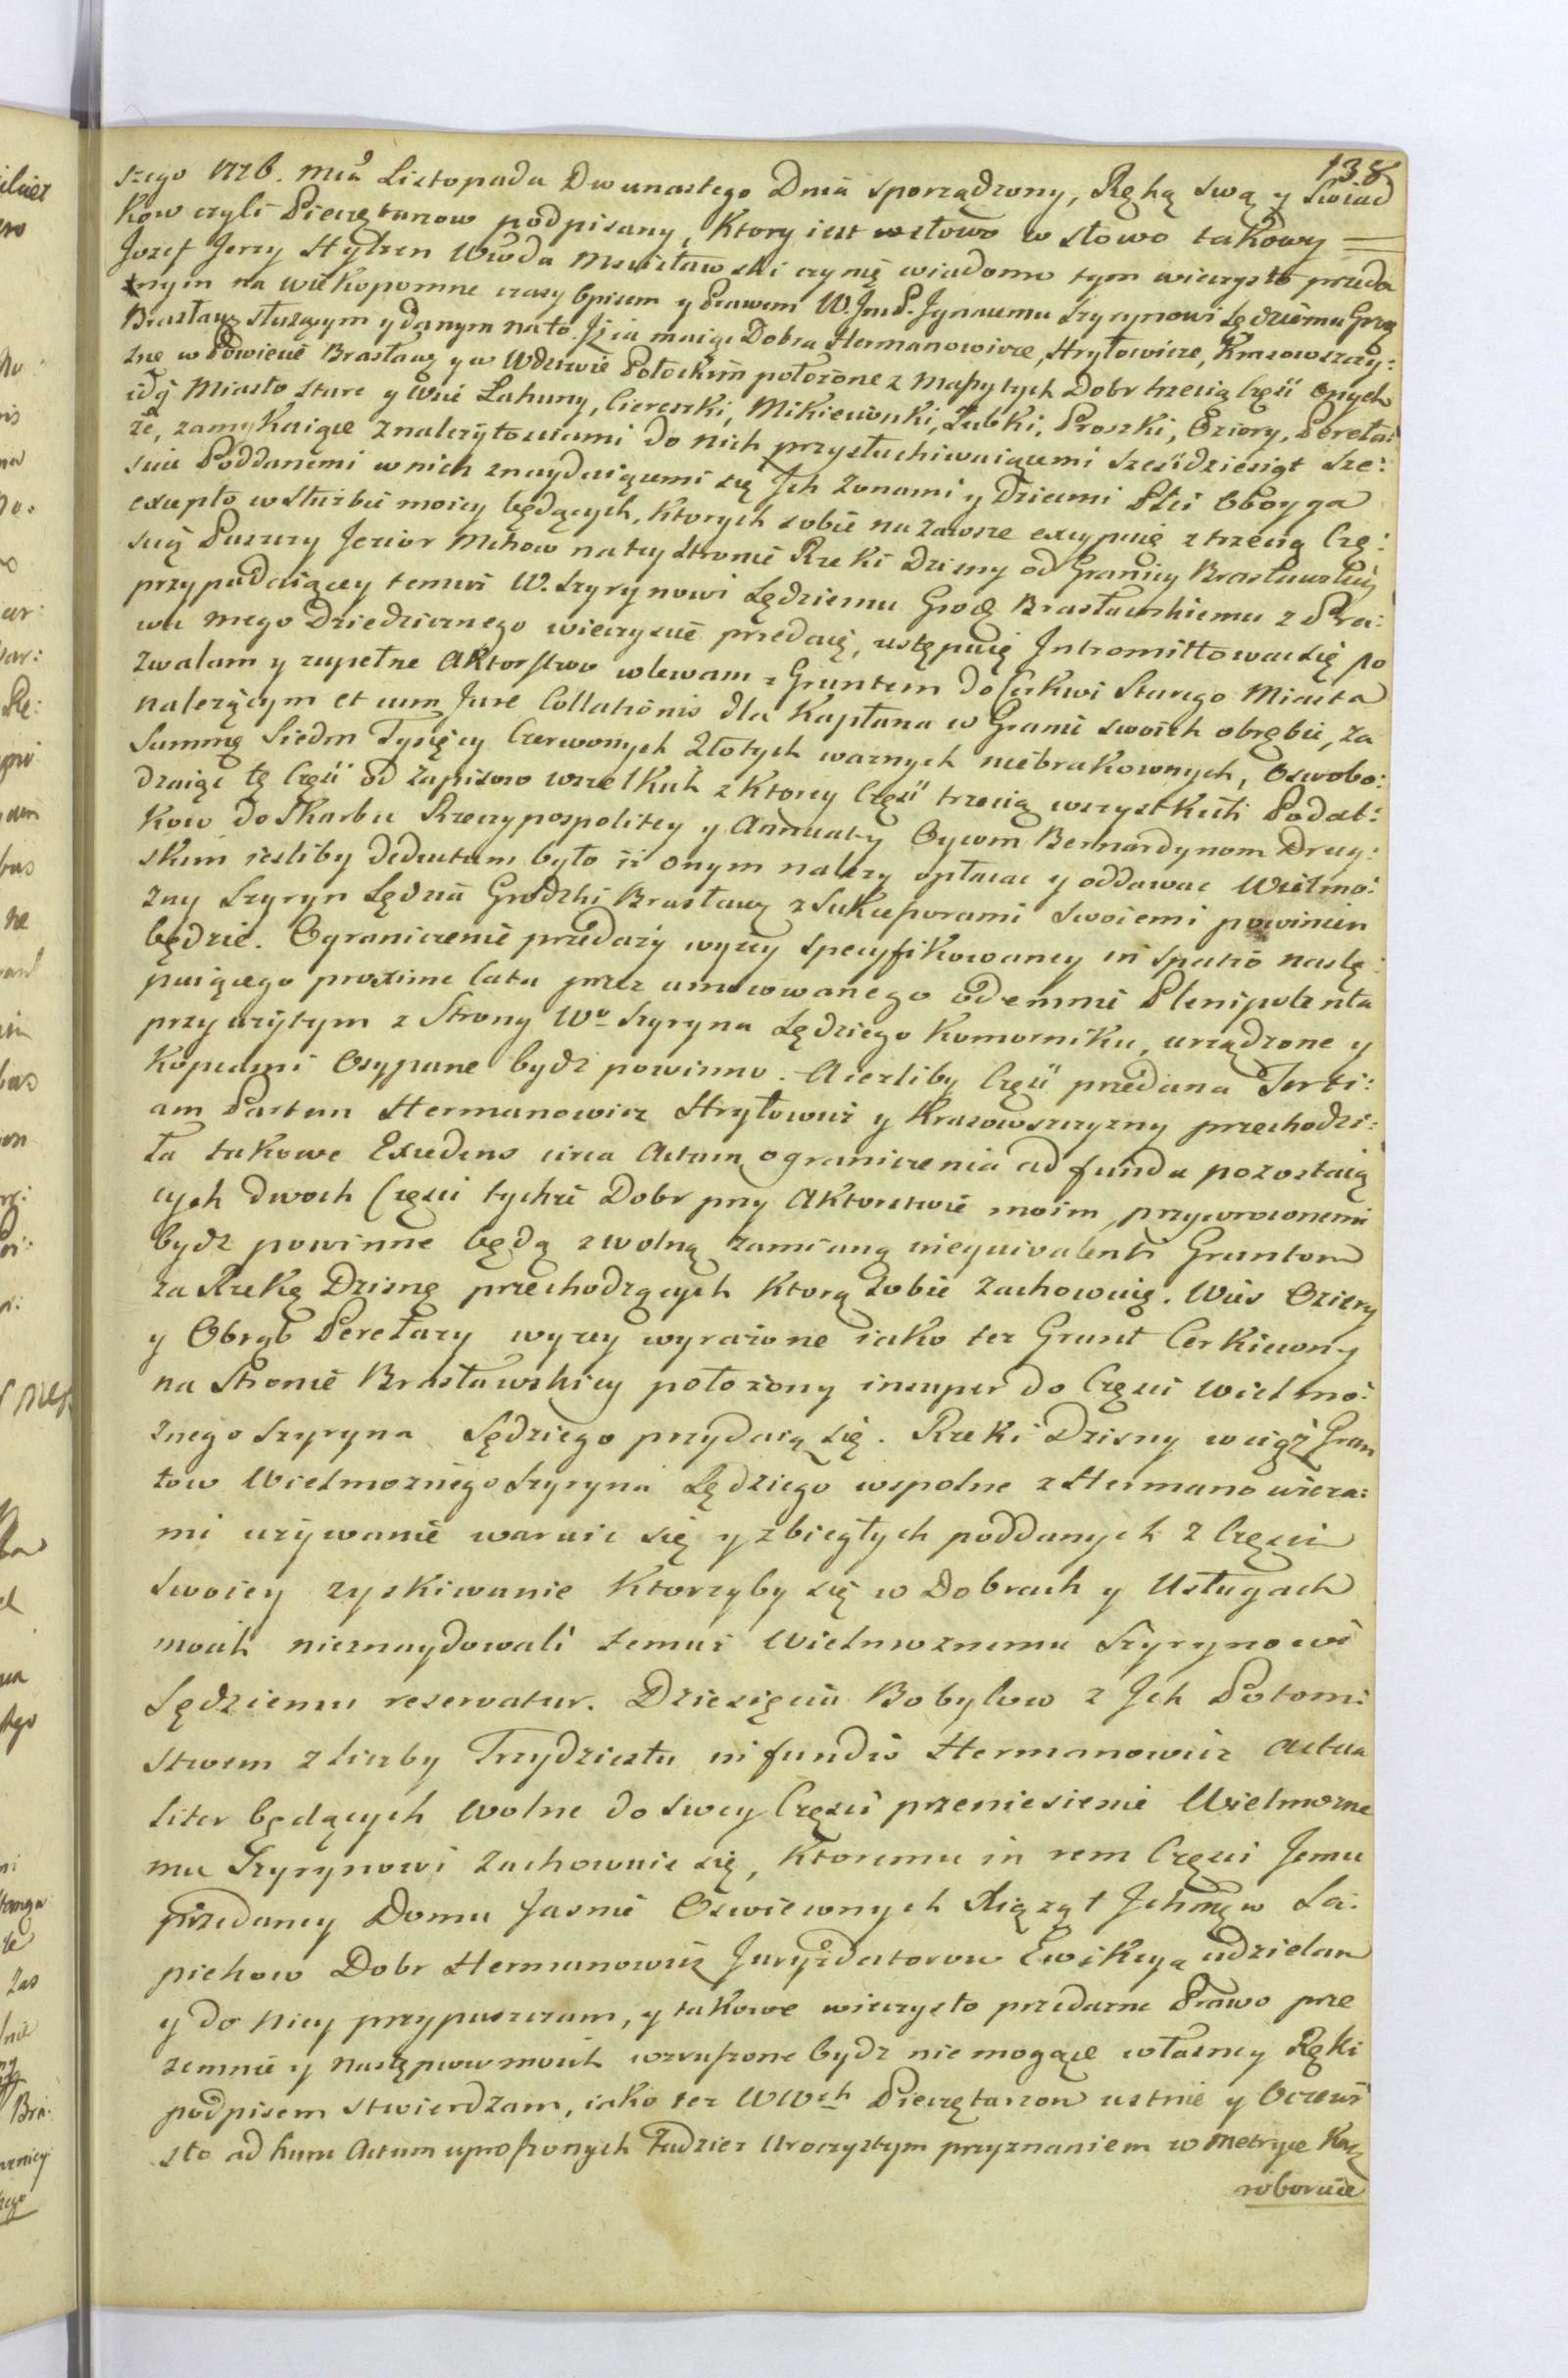 138
szego 1776. Mca Listopada Dwunastego Dnia sporządzony, Ręką swą y Swiad
kow czyli Pieczętarzow podpisany, Ktory iest w słowo w słowo takowy
Jozef Jerzy Hylzen Wwda Mscisławski czynię wiadomo tym wieczysto przeda
nym na wiekopomne czasy Opisem y Prawem W. Jmć P. Jgnacemu Szyrynowi Sędziemu Grodz
Brasław: służącym y danym na to. Jż ia maiąc Dobra Hermanowicze, Hryłowicze, Krasowszczy:
znę w Powiecie Brasław: y w Wdztwie Połockim położone z Massy tych Dobr trzecią Częsć onych
idq Miasto stare y Wsie Łahuny, Ciereszki, Mikieionki, Zubki, Proszki, Oziory, Perełaz
ze, zamykaiące z należytosciami do nich przysłuchiwaiącemi szescdziesiąt sze:
sciu Poddanemi w nich znayduiącemi się Jch Zonami y Dziecmi Płci Oboyga
excepto w służbie moiey będących, ktorych sobie na zawsze excypuię z trzecią Czę:
scią Puszczy Jezior Mchow na tey stronie Rzeki Dzisny od Granicy Brasławskiey
przypadaiącey temuż W. Szyrynowi Sędziemu Grodz Brasławskiemu z Pra:
wa mego Dziedzicznego wieczyscie przedaię, ustępuię Jntromittowac się po
zwalam y zupełne Aktorstwo wlewam z Gruntem do Cerkwi Starego Miasta
należącym et cum Jure Collationis dla Kapłana w Granic swoich obrębie, za
Summę Siedm Tysięcy Czerwonych Złotych ważnych niebrakownych, oswobo:
dzaiąc tę Częsć od zapisow wszelkich z ktorey Częsć trzecią wszystkich Podat:
kow do Skarbu Rzeczypospolitey y Annuaty Oycom Bernardynom Druy:
skim iesliby deductum było iż onym należy opłacac y oddawac Wielmo:
żny Szyryn Sędzia Grodzki Brasław: z Sukcessorami swoiemi powinien
będzie. Ograniczenie przedaży wyżey specyfikowaney in spatio nastę:
puiącego proxime lata przez umocowanego odemnie Plenipotenta
przy użytym z Strony Wo Szyryna Sędziego Komorniku, urządzone y
Kopcami Osypane bydz powinno. A iezliby Częsć przedana Terti:
am Partem Hermanowicz Hryłowicz y Krasowszczyzny przechodzi:
ła takowe Excedens circa Actum ograniczenia ad funda pozostaią
cych dwoch Częsci tychże Dobr przy Aktorstwie moim, przywroconemi
bydz powinne będą z wolną zamianą in equivalenti Gruntow
za Rzekę Dzisnę przechodzących ktorą sobie zachowuię. Wies Oziery
y Obręb Perełazy wyżey wyrażone iako też Grunt Cerkiewny
na Stronie Brasławskiey położony insuper do Częsci Wielmo:
żnego Szyryna Sędziego przydaią się. Rzeki Dzisny wciąż Grun
tow Wielmożnego Szyryna Sędziego wspolne z Hermanowicza:
mi używanie waruie się y zbiegłych poddanych z Częsci
swoiey zyskiwanie ktorzyby się w Dobrach y Usługach
moich nieznaydowali temuż Wielmożnemu Szyrynowi
Sędziemu reservatur. Dziesięciu Bobylow z Jch Potom:
stwem z liczby Trzydziestu in fundo Hermanowicz actua
liter będących wolne do swey Częsci przeniesienie Wielmożne
mu Szyrynowi zachowuie się, ktoremu in rem Częsci Jemu
przedaney Domu Jasnie Oswieconych Xiążąt Jchmcw Sa:
piehow Dobr Hermanowicz Juryzdatorow Ewikcyą udzielam
y do niey przypuszczam, y takowe wieczysto przedarne Prawo prze
zemnie y następcow moich wzruszone bydz nie mogące własney Ręki
podpisem stwierdzam, iako też WWch Pieczętarzow ustnie y Oczewi
sto ad hunc Actum uproszonych Tudzież Uroczystym przyznaniem w Metryce Kor
roboruie